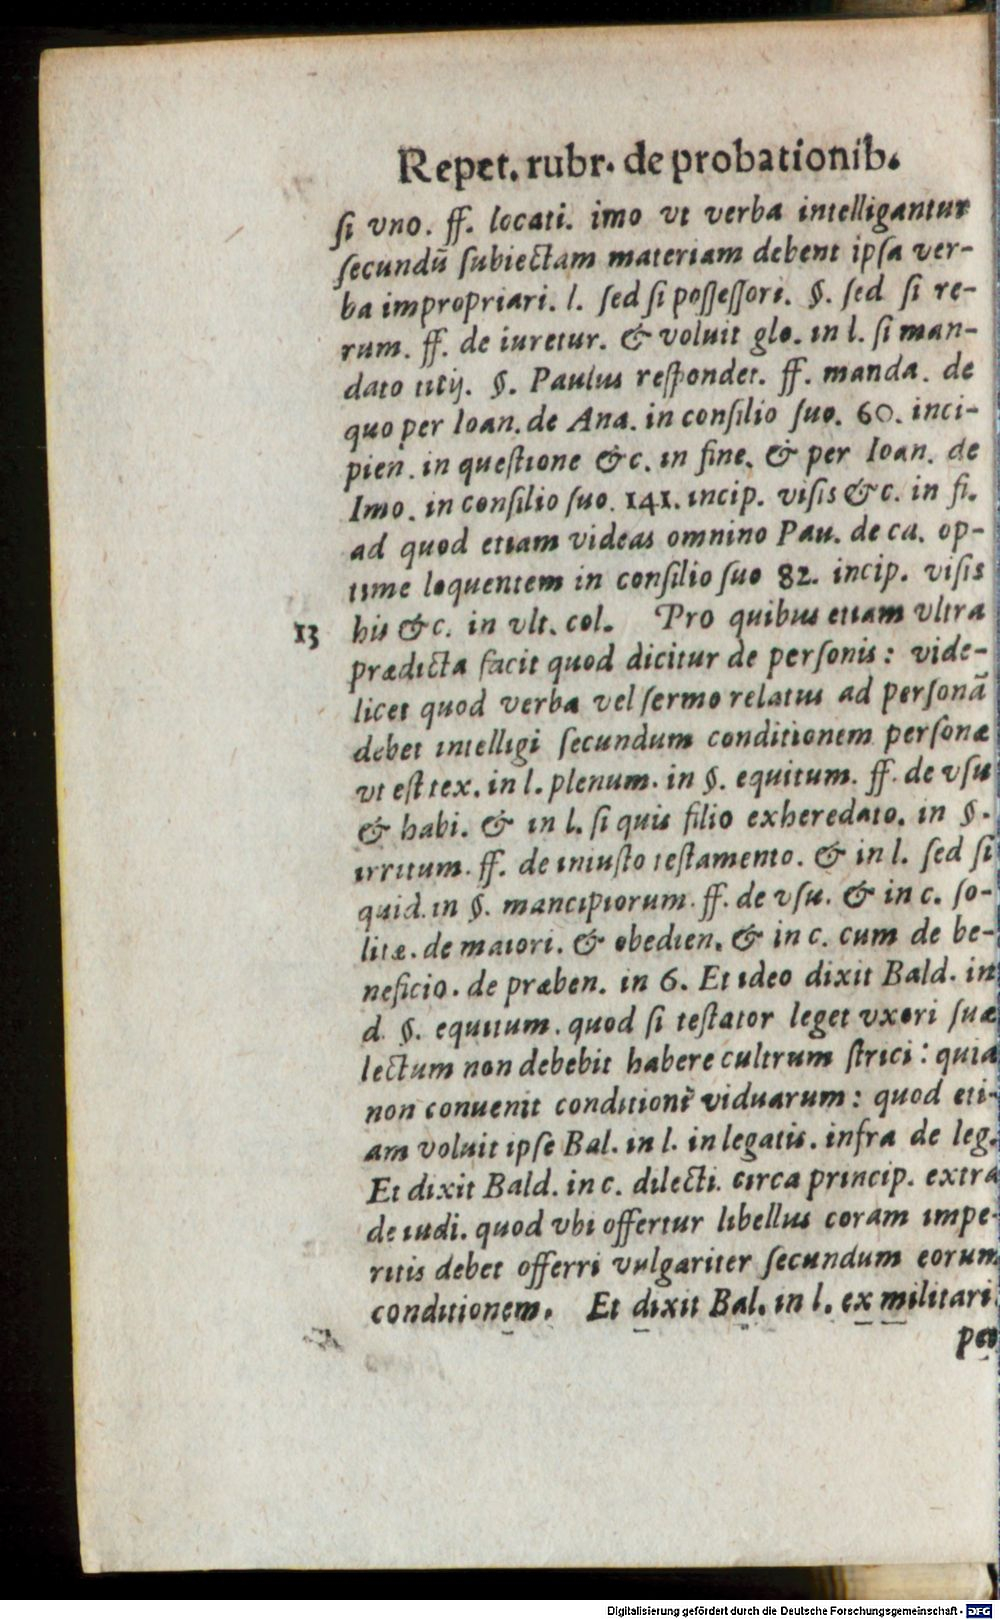 Repet. rubr. de probationib.
ſi vno. ff. locati. imo vt verba intelligantur
ſecundū ſubiectam materiam debent ipſa ver-
ba impropriari. l. ſed ſi poſſeſſori. §. ſed ſi re-
rum. ff. de iuretur. & voluit glo. in l. ſi man-
dato titij. §. Paulus reſpondet. ff. manda. de
quo per Ioan. de Ana. in conſilio ſuo. 60. inci-
pien. in queſtione &c. in fine. & per Ioan. de
Imo. in conſilio ſuo. 141. incip. viſis &c. in fi.
ad quod etiam videas omnino Pau. de ca. op-
time loquentem in conſilio ſuo 82. incip. viſis
13 his &c. in vlt. col. Pro quibus etiam vltra
prædicta facit quod dicitur de perſonis: vide-
licet quod verba vel ſermo relatus ad perſonā
debet intelligi ſecundum conditionem perſonæ
vt eſt tex. in l. plenum. in §. equitum. ff. de vſu
& habi. & in l. ſi quis filio exheredato. in §.
irritum. ff. de iniuſto teſtamento. & in l. ſed ſi
quid. in §. mancipiorum. ff. de vſu. & in c. ſo-
litæ. de maiori. & obedien. & in c. cum de be-
neficio. de præben. in 6. Et ideo dixit Bald. in
d. §. equitum. quod ſi teſtator leget vxori ſuæ
lectum non debebit habere cultrum ſtrici: quia
non conuenit conditioni viduarum: quod eti-
am voluit ipſe Bal. in l. in legatis. infra de leg.
Et dixit Bald. in c. dilecti. circa princip. extra
de iudi. quod vbi offertur libellus coram impe-
ritis debet offerri vulgariter ſecundum eorum
conditionem. Et dixit Bal. in l. ex militari
per
Digitalisierung gefördert durch die Deutsche Forschungsgemeinschaft - DFG